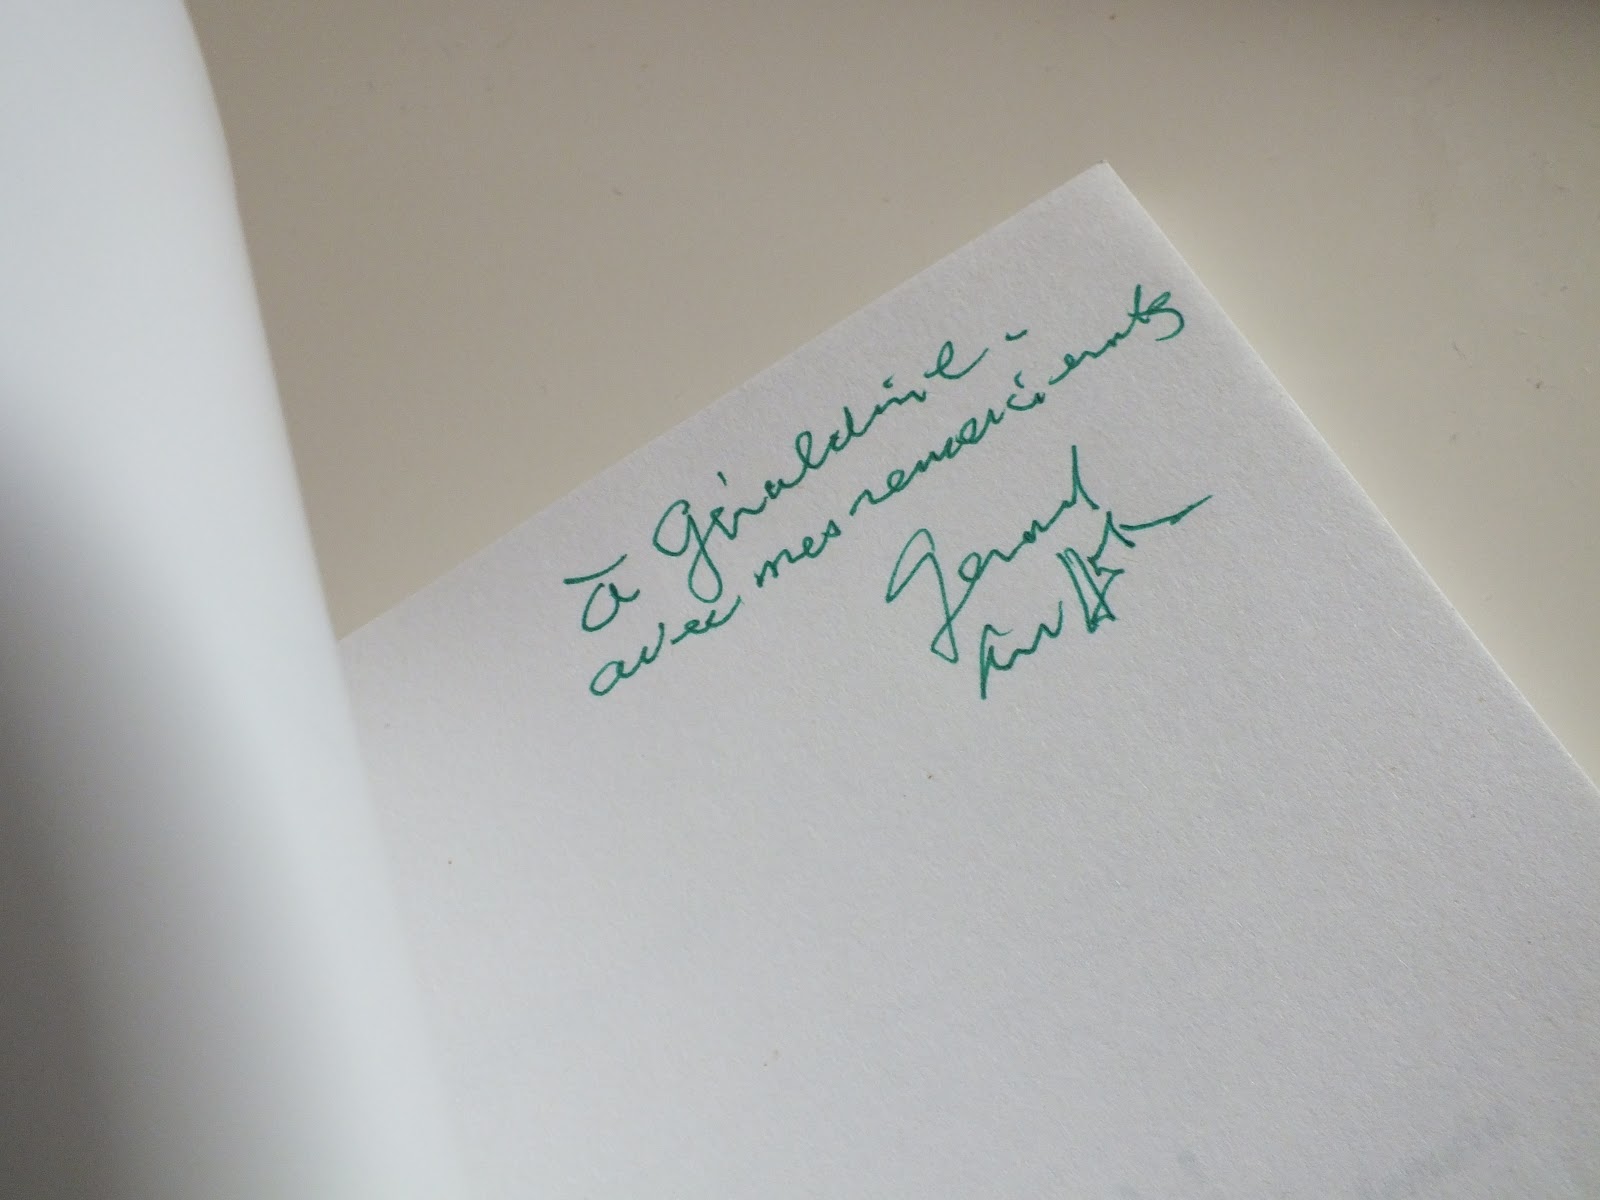 à Géraldine -
avec mes remerciements
Gérard